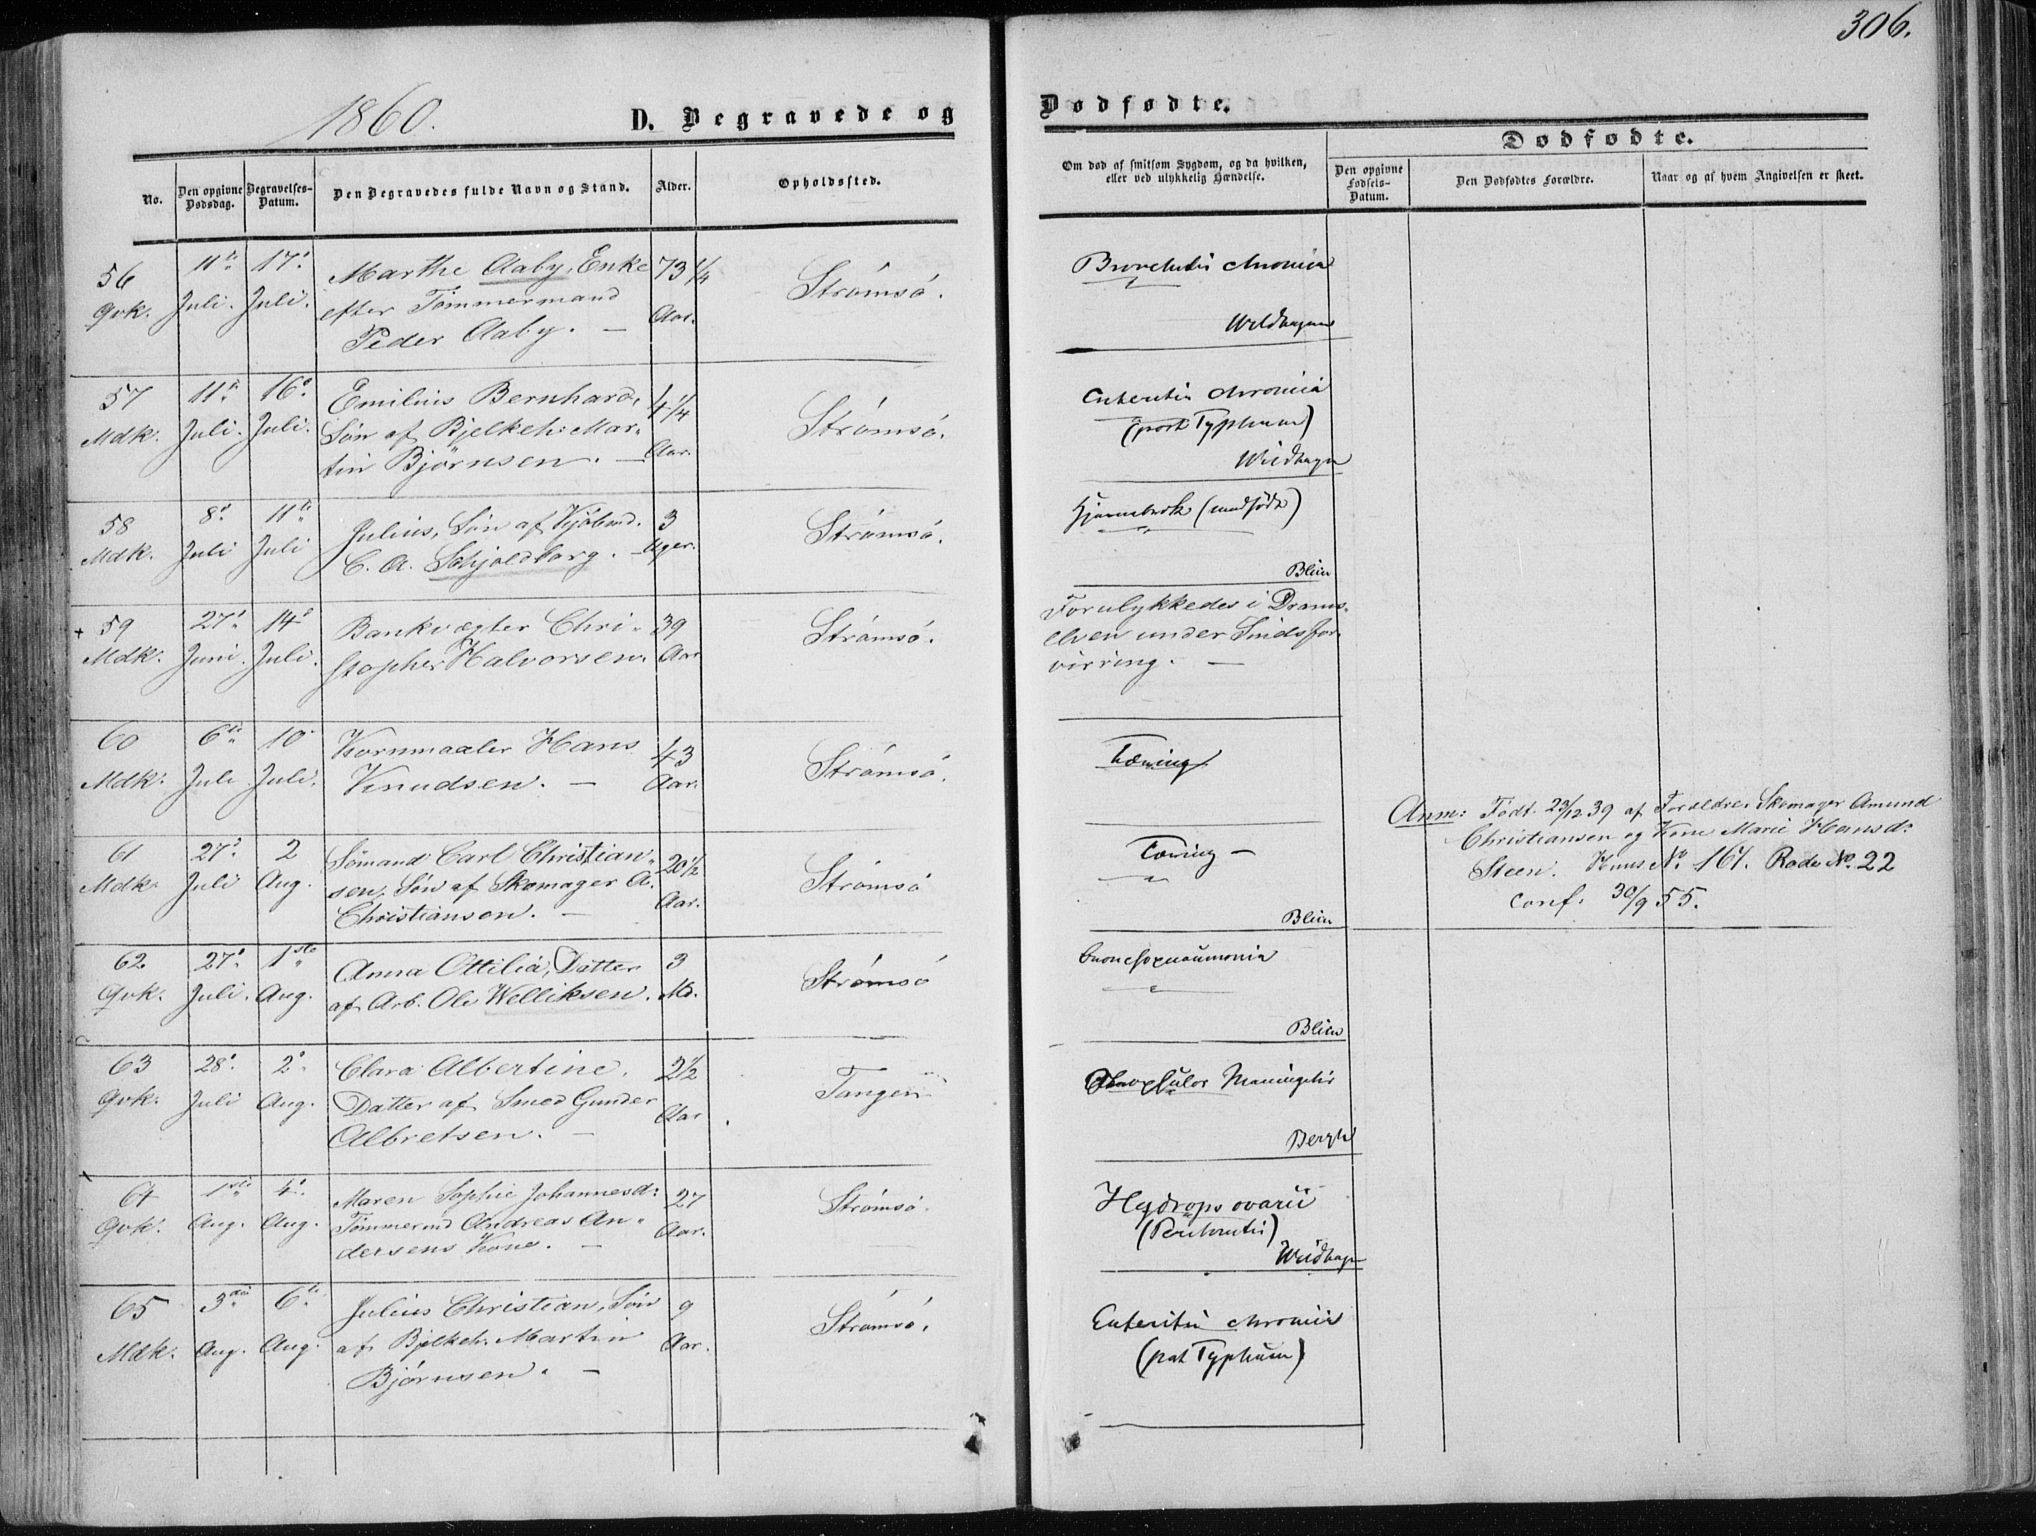 306.
1860.
D. Begravede og
Dødfødte.
No.
Den opgivne Dødsdag.
Begravelses-Datum.
Den Begravedes fulde Navn og Stand.
Alder.
Opholdssted.
Om død af smitsom Sygdom, og da hvilken,
eller ved ulykkelig Hændelse.
Dødfødte.
Den opgivne Fødsels-Datum.
Den Dødfødtes Forældre.
Naar og af hvem Angivelsen er skeet.
56 11te 17de Marthe Aaby, Enke 73 1/4 Strømsø.
Qvk. Juli. Juli. efter Tømmermand Aar.
Peder Aaby. —
Bronchitis chronica
57 11te 16de Emilius Bernhard, 4 1/4 Strømsø.
Mdk. Juli. Juli. Søn af Bjelkeh: Mar-
tin Bjørnsen. — Aar.
Enteritis chronica
(post Typhum)
58 8de 11te Julius, Søn af Kjøbmd. 3 Strømsø.
Mdk. Juli Juli C. A. Schjoldborg. — Uger.
(medfødt)
Blien
59 27de 14de Bankvægter Chri- 39 Strømsø.
Mdk. Juni. Juli. stopher Halvorsen. Aar
Forulykkedes i Drams-
elven under Sindsfor-
virring. —
60 6te 10de Kornmaaler Hans 43 Strømsø.
Mdk. Juli Juli. Knudsen. — Aar.
Tæring
61 27de 2 Sømand Carl Christian- 20 1/2 Strømsø
Mdk. Juli Aug. sen, Søn af Skomager A. Aar.
Christiansen. —
Tæring —
Blien
Anm: Født 23/12 39 af Forældre Skomager Amund
Christiansen og Kone Marie Hansd:
Steen. Huus No. 167. Rode No. 22
Conf. 30/9 55.
62 27de 1ste Anna Ottilia, Datter 3 Strømsø
Qvk. Juli. Aug. af Arb. Ole Welliksen. Md.
Blien
63 28de 2de Clara Albertine, 2 1/2 Tangen
Qvk. Juli Aug. Datter af Smed Gunder Aar
Albretsen. —
Meningitis
Bergh
64 1ste 4de Maren Sophie Johannesd: 27 Strømsø.
Qvk. Aug. Aug. Tømmermd Andreas An- Aar.
dersens Kone. —
Hydrops ovarii
(Peritonitis)
65 3die 6te Julius Christian, Søn 9 Strømsø.
Mdk. Aug. Aug. af Bjelkeh. Martin Aar.
Bjørnsen. —
Enteritis chronica
(post Typhum)